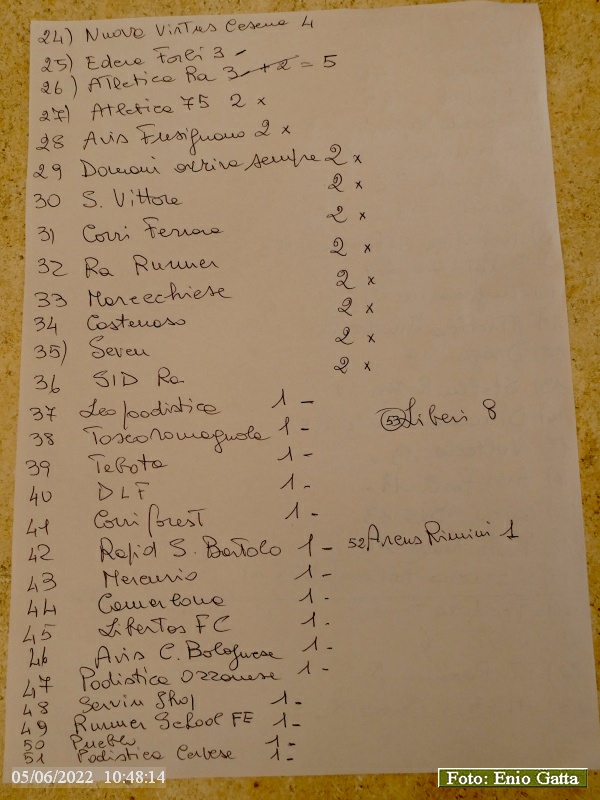 24) Nuova Virtus Cesena 4
25) Edera Forlì 3 -
26) Atletica Ra 3 + 2 = 5
27) Atletica 75 2 x
28 Avis Fusignano 2 x
29 Domani correrò sempre 2 x
30 S. Vittore 2 x
31 Corri Ferrara 2 x
32 Ra Runner 2 x
33 Marecchiese 2 x
34 Castenaso 2 x
35) Seven 2 x
36 SID Ra 2 x
37 Leopodistica 1 -
38 Toscoromagnola 1 -
53 Liberi 8
39 Tebota 1 -
40 DLF 1 -
41 Corriforest 1 -
42 Rapid S. Bartolo 1 -
52 Arcus Rimini 1
43 Mercurio 1 -
44 Camerlona 1 -
45 Libertas FC 1 -
46 Avis C. Bolognese 1 -
47 Podistica Ozzanese 1 -
48 Servin Shop 1 -
49 Runner School FE 1 -
50 Pueblo 1 -
51 Podistica Cerbese 1 -
05/06/2022 10:48:14
Foto: Enio Gatta